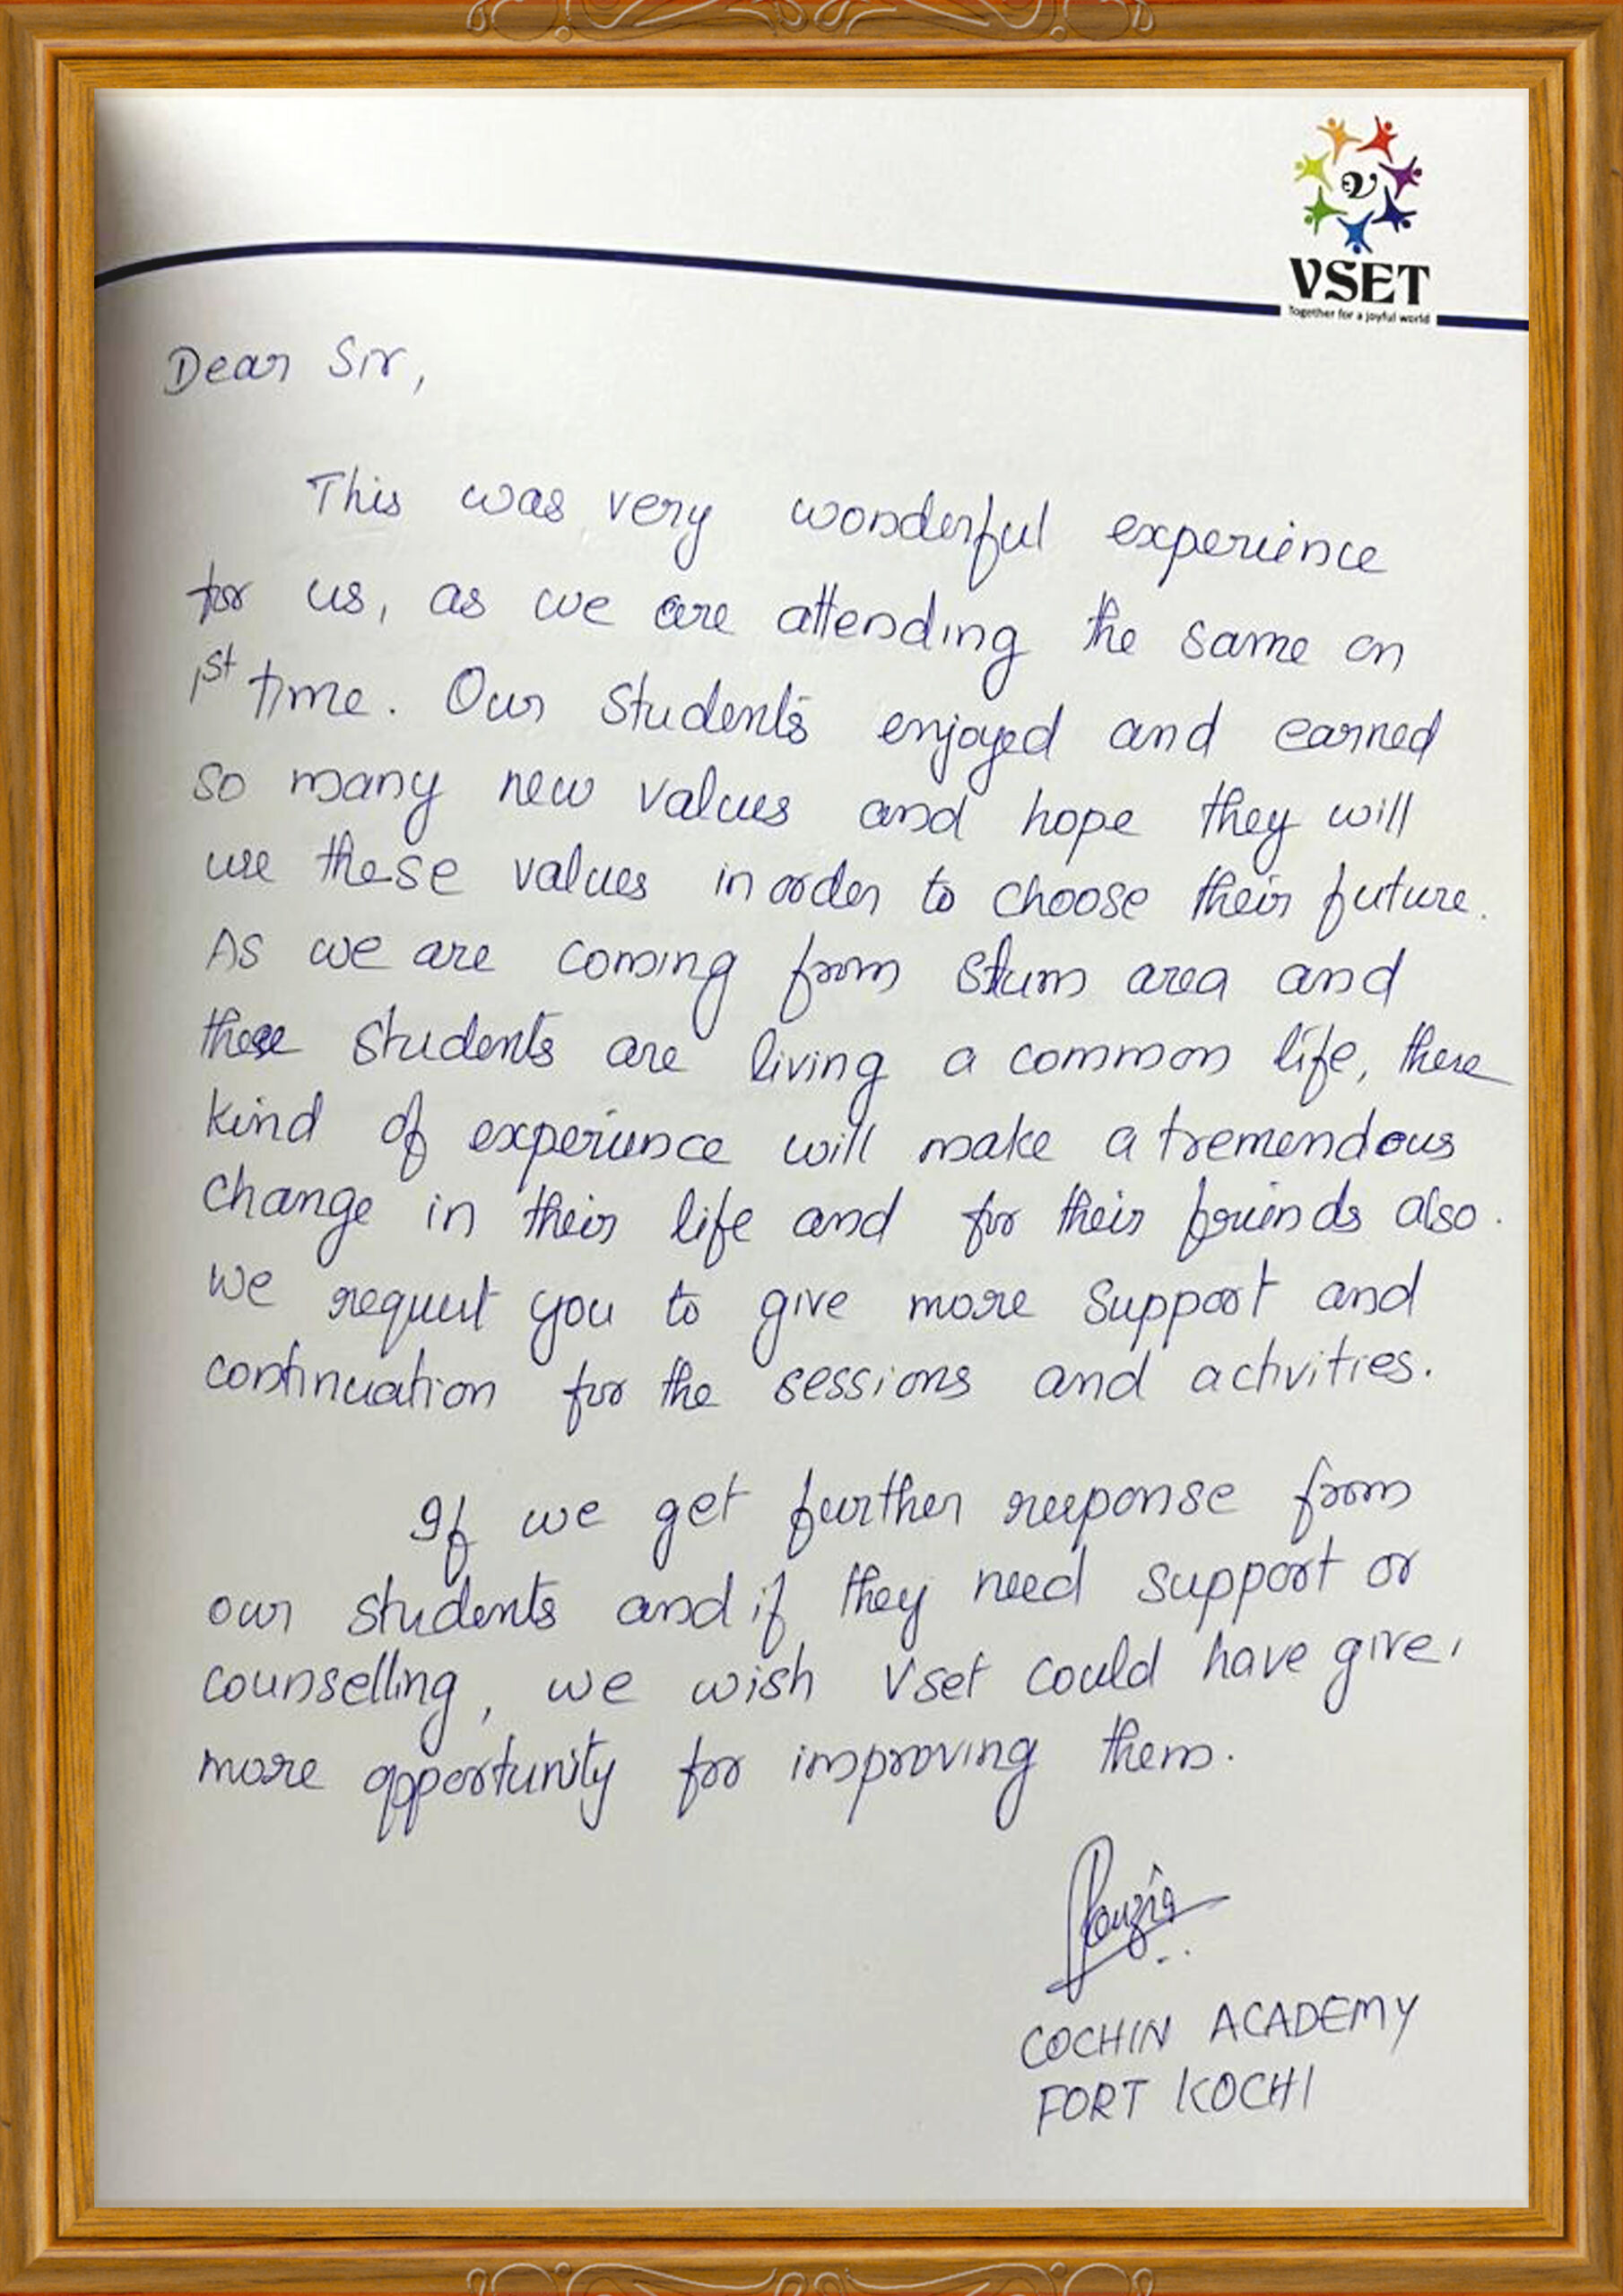 VSET
Together for a joyful world
Dear Sir,
This was very wonderful experience
for us, as we are attending the same on
1st time. Our students enjoyed and earned
so many new values and hope they will
use these values in order to choose their future.
As we are coming from slum area and
these students are living a common life, these
kind of experience will make a tremendous
change in their life and for their friends also.
We request you to give more support and
continuation for the sessions and activities.
If we get further response from
our students and if they need support or
counselling, we wish Vset could have give
more opportunity for improving them.
Fouzia
COCHIN ACADEMY
FORT KOCHI